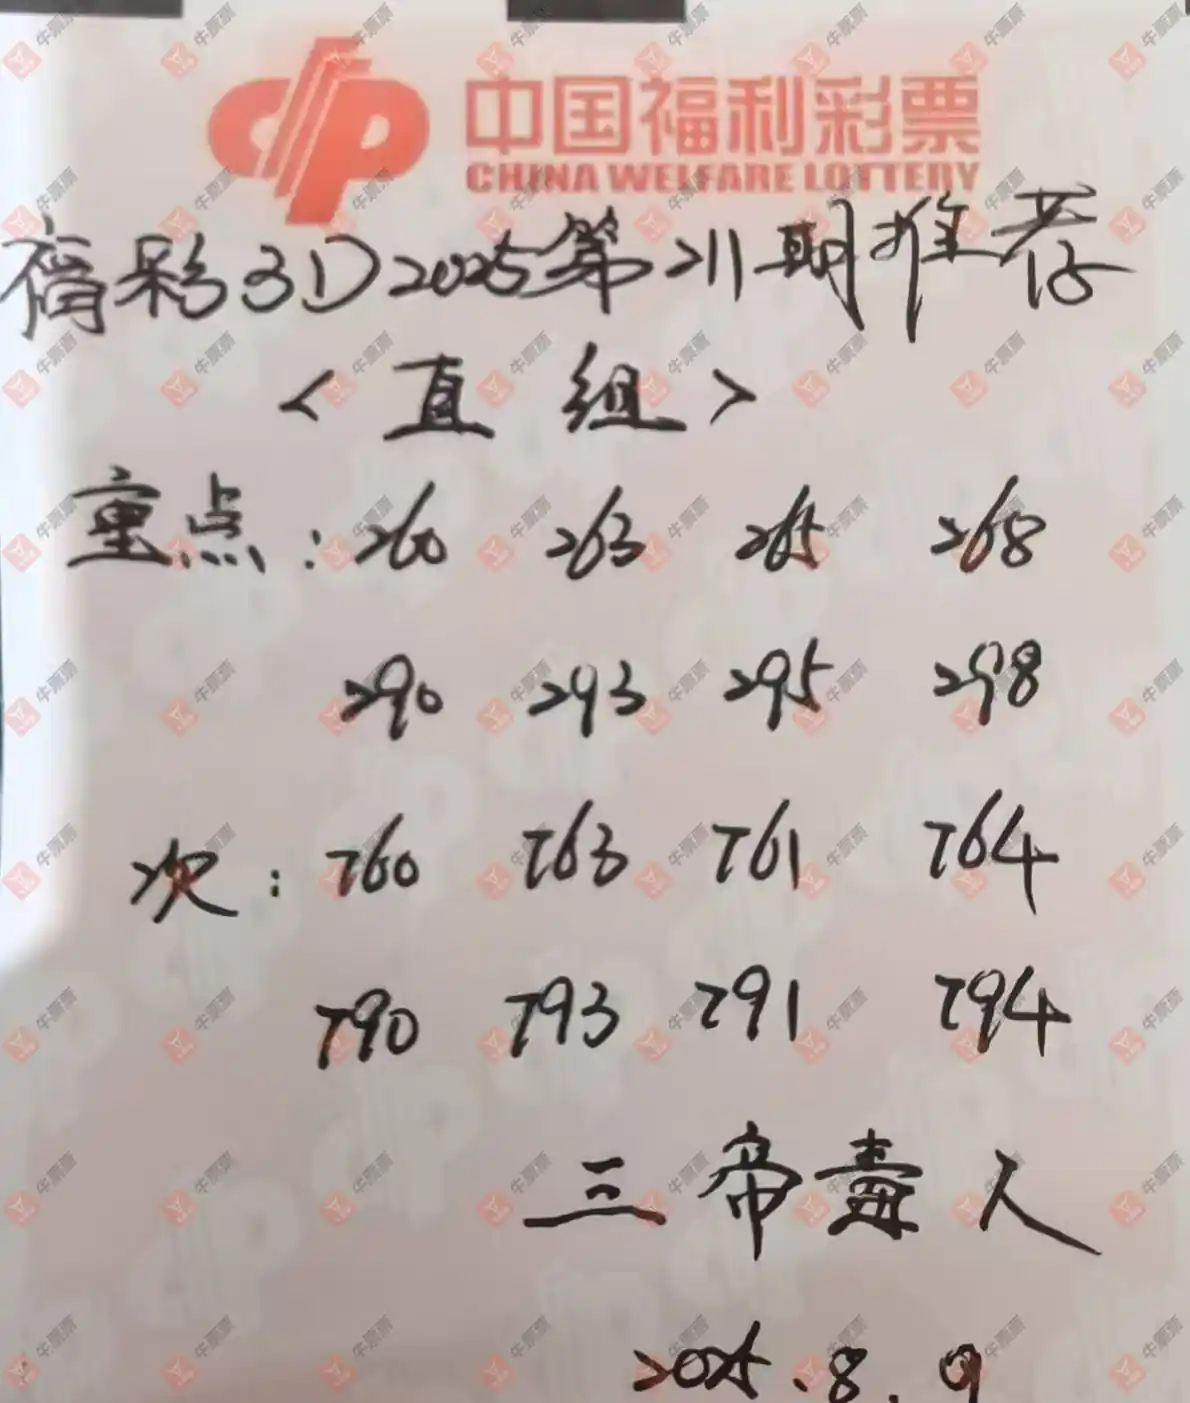 中国福利彩票
CHINA WELFARE LOTTERY
福彩3D2025第211期推荐
<直组>
重点:260 263 265 268
290 293 295 298
次:760 763 761 764
790 793 791 794
三帝毒人
2025.8.9
牛票票